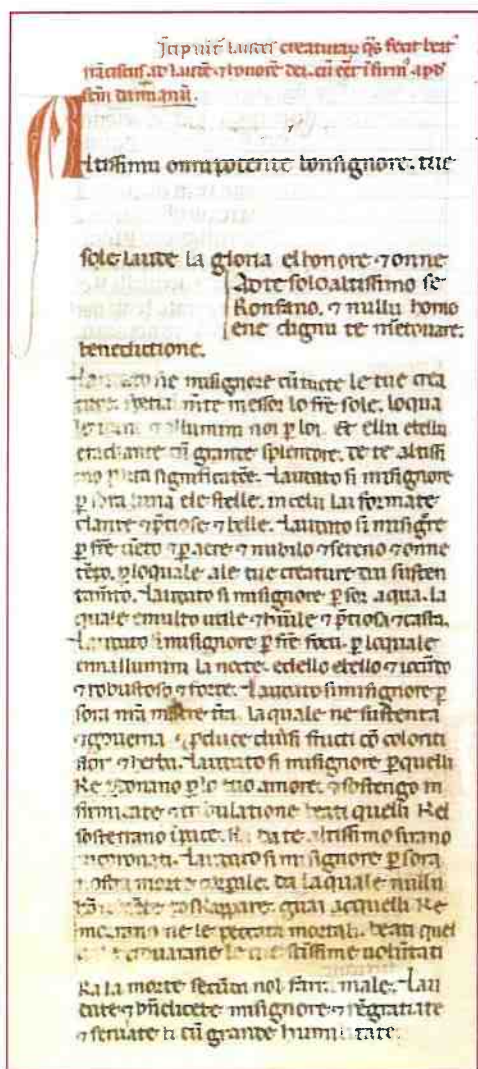 Incipiunt laudes creaturarum qs fecit beat'
franciscus ad laudē ⁊ honorē dei. cū eēt ifirm' apd
scm damianū.
Altissimu onnipotente bonsignore. tue
sole laude la gloria elhonore ⁊ onne
Adte solo altissimo se
Konfano. ⁊ nullu homo
ene dignu te mētouare.
benedictione.
Laudato sie misignore cū tucte le tue crea
ture. spetialmēte messor lo frē sole. loqua
le iorno ⁊ allumini noi p loi. Et ellu ebellu
eradiante cū grande splendore. de te altissi
mo porta significatōe. Laudato si misignore
p sora luna ele stelle. incelu lai formate
clarite ⁊ ptiose ⁊ belle. Laudato si misigre
p frē uēto ⁊ p aere ⁊ nubilo ⁊ sereno ⁊ onne
tēpo. p loquale ale tue creature dai susten
tamēto. Laudato si misignore p sor aqua. la
quale emulto utile ⁊ hūile ⁊ ptiosa ⁊ casta.
Laudato si misignore p frē focu. p loquale
ennallumini la nocte. edello ebello ⁊ iocūdo
⁊ robustoso ⁊ forte. Laudato si misignore p
sora mā matre tra. laquale ne sustenta
⁊ gouerna ⁊ pduce diūsi fructi cō coloriti
flori ⁊ herba. Laudato si misignore p quelli
Ke pdonano p lo tuo amore. ⁊ sostengo in
firmitate ⁊ tribulatione beati quelli Kel
sosterrano ipace. Ka da te altissimo sirano
incoronati. Laudato si misignore p sora
nostra morte corporale. da laquale nullu
homo uiuēte poskappare. guai acquelli Ke
morrano ne le peccata mortali. beati quel
li ke trouarane le tue sctissime uoluntati
Ka la morte secūda nol farra male. Lau
date ⁊ bn̄dicete misignore ⁊ rēgratiate
⁊ seruiateli cū grande humilitate.